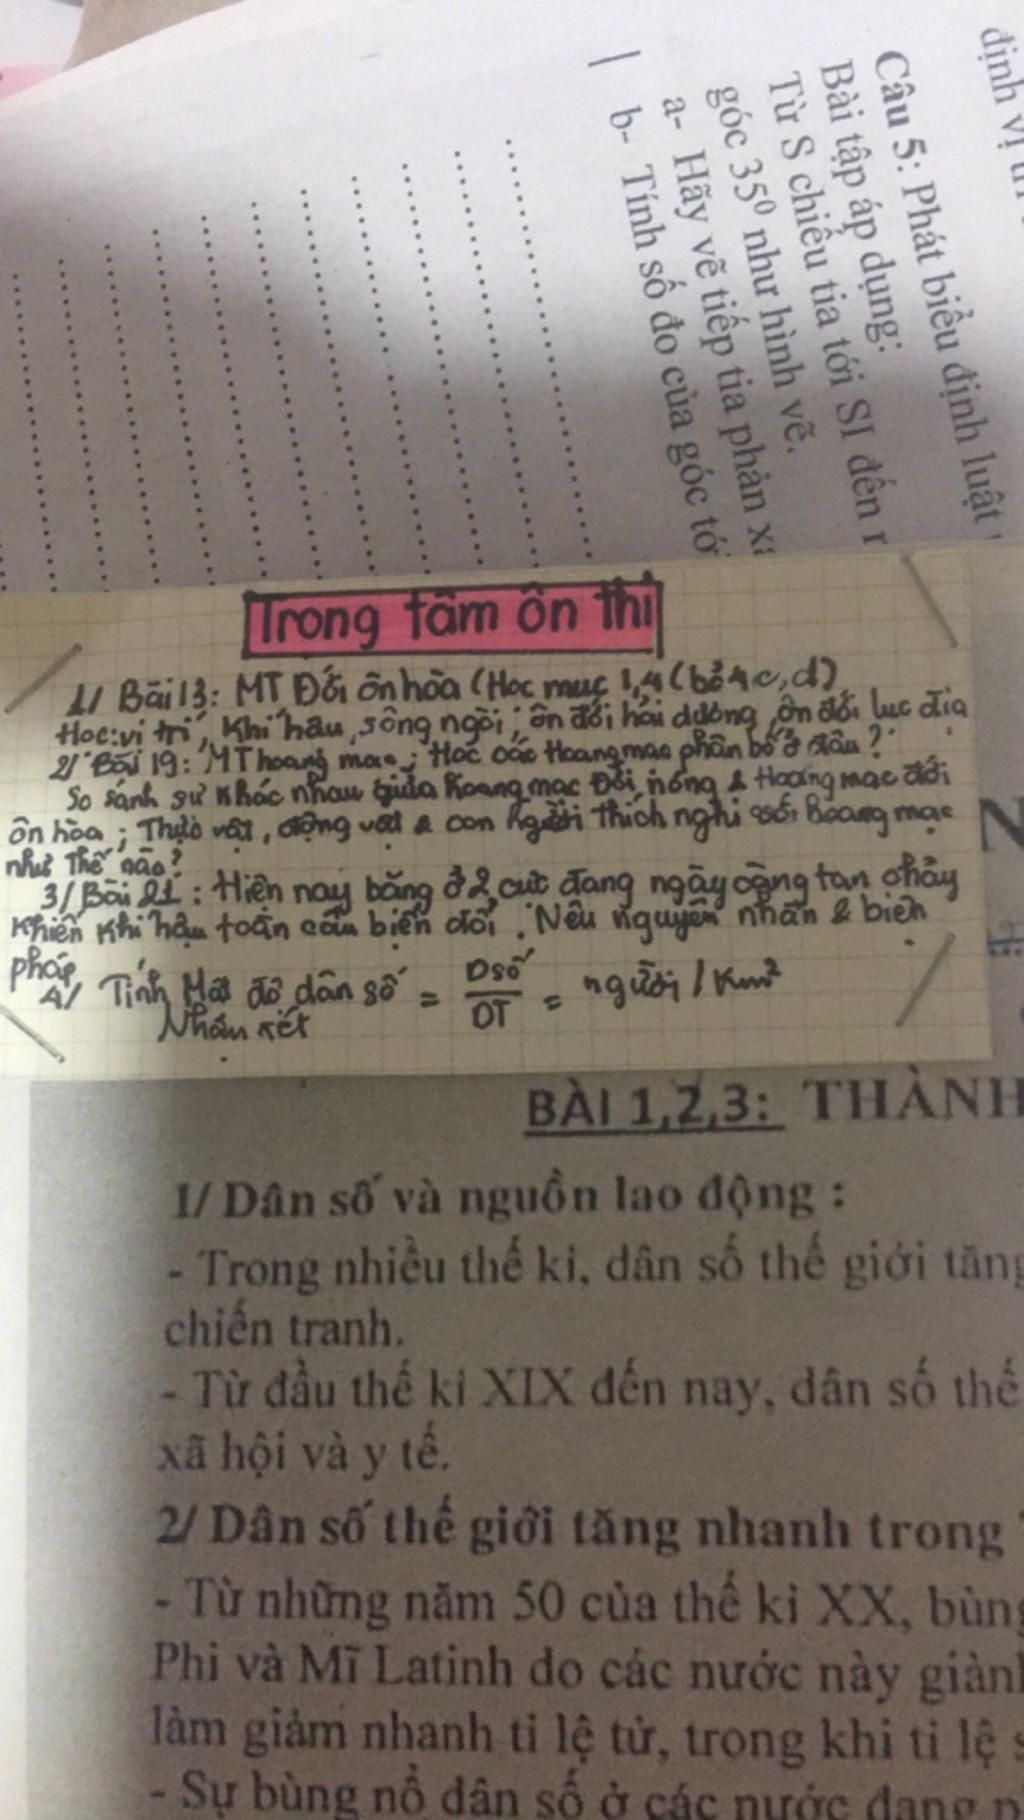 định vị
Câu 5: Phát biểu định luật
Bài tập áp dụng:
Từ S chiếu tia tới SI đến
góc 35⁰ như hình vẽ.
a- Hãy vẽ tiếp tia phản
b- Tính số đo của góc
Trong tâm ôn thi
1/ Bài 13: MT Đới ôn hòa (Học mục 1,4 (bỏ 4c,d)
Học: vị trí, Khí hậu, sông ngòi; ôn đới hải dương, ôn đới lục địa
2/ Bài 19: MT hoang mạc; Học các Hoang mạc phân bố ở đâu?
So sánh sự khác nhau giữa hoang mạc Đới nóng & Hoang mạc đới
ôn hòa; Thực vật, động vật & con người thích nghi với hoang mạc
như thế nào?
3/ Bài 21: Hiện nay băng ở 2 cực đang ngày càng tan chảy
khiến khí hậu toàn cầu biến đổi. Nêu nguyên nhân & biện
pháp
4/ Tính Mật độ dân số = Dsố/DT = người/Km²
Nhận xét
BÀI 1,2,3: THÀNH
1/ Dân số và nguồn lao động :
- Trong nhiều thế kỉ, dân số thế giới tăng
chiến tranh.
- Từ đầu thế kỉ XIX đến nay, dân số thế
xã hội và y tế.
2/ Dân số thế giới tăng nhanh trong
- Từ những năm 50 của thế kỉ XX, bùng
Phi và Mĩ Latinh do các nước này giành
làm giảm nhanh tỉ lệ tử, trong khi tỉ lệ
- Sự bùng nổ dân số ở các nước đang